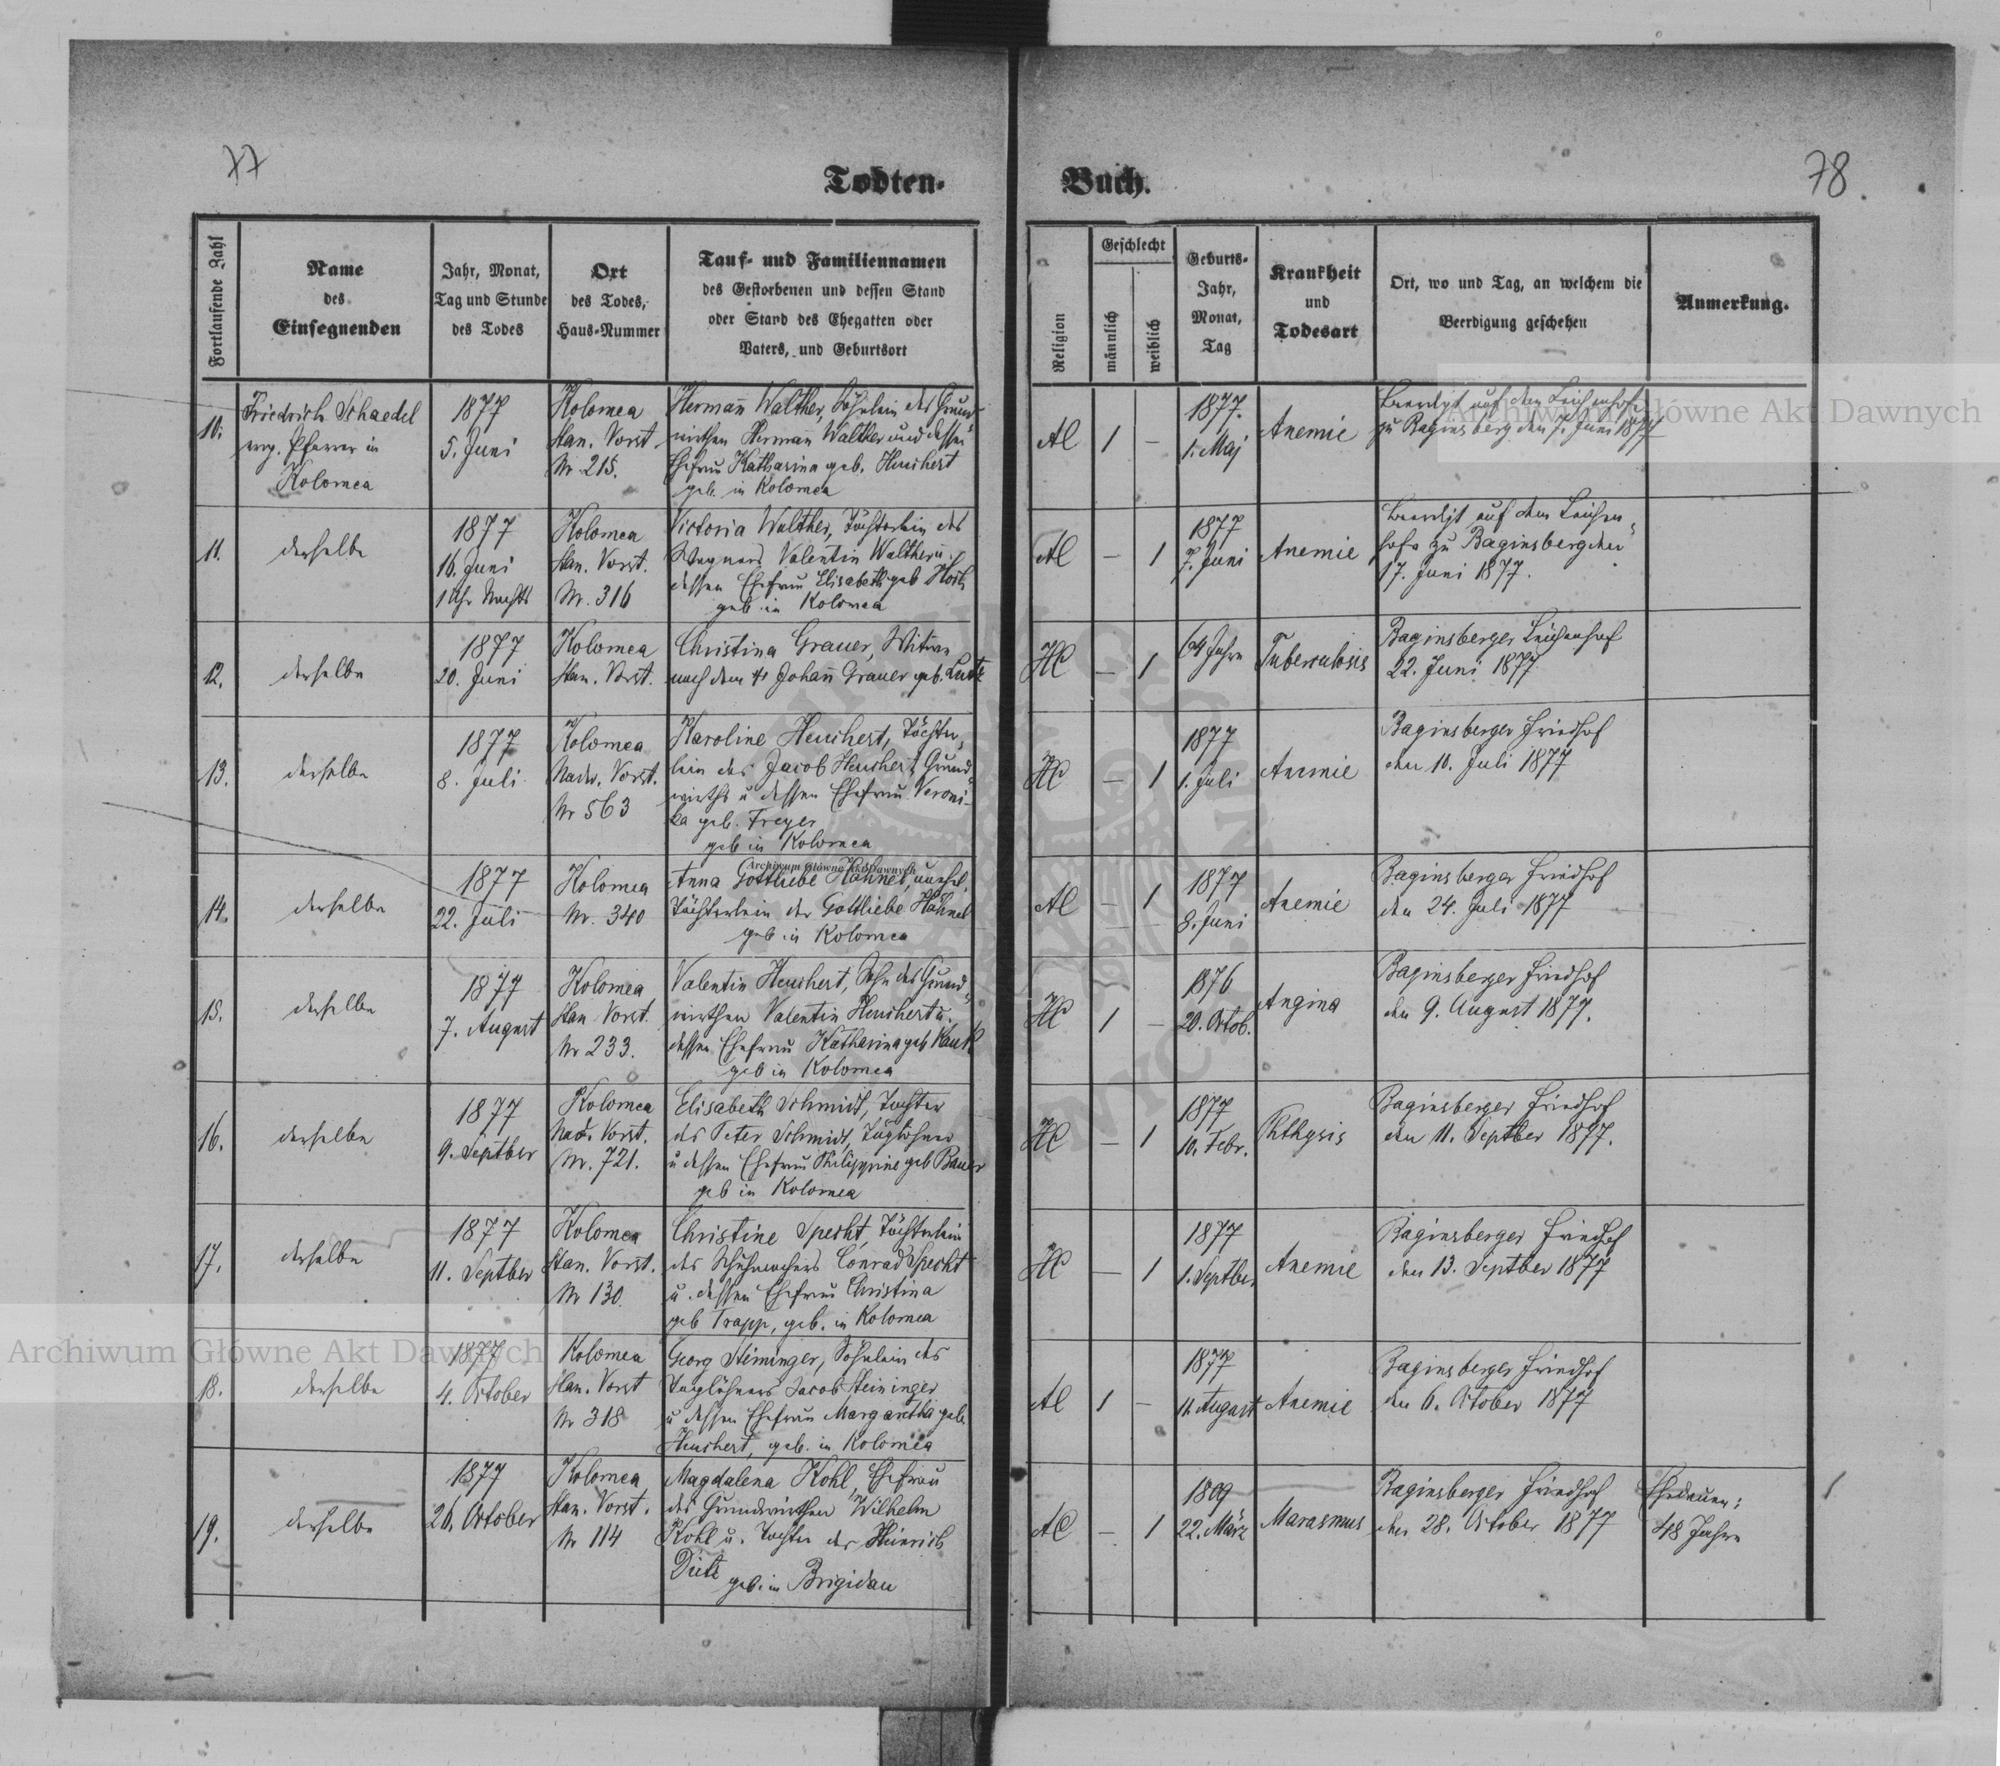 77
Todten-
Buch.
78
Fortlaufende Zahl
Name
des
Einsegnenden
Jahr, Monat,
Tag und Stunde
des Todes
Ort
des Todes,
Haus-Nummer
Tauf- und Familiennamen
des Gestorbenen und dessen Stand
oder Stand des Ehegatten oder
Vaters, und Geburtsort
Religion
Geschlecht
männlich
weiblich
Geburts-
Jahr,
Monat,
Tag
Krankheit
und
Todesart
Ort, wo und Tag, an welchem die
Beerdigung geschehen
Anmerkung.
10.
Friedrich Schaedel
evg. Pfarrer in
Kolomea
1877
5. Juni
Kolomea
Stan. Vorst.
Nr. 215.
Hermañ Walther, Söhnlein des Grund-
wirthen Hermañ Walther und dessen
Ehefrau Katharina geb. Heuchert
geb. in Kolomea
AC
1
–
1877.
1. Maj
Anemie
Beerdigt auf dem Leichenhofe
zu Baginsberg den 7. Juni 1877
11.
derselbe
1877
16. Juni
1 Uhr Nachts
Kolomea
Stan. Vorst.
Nr. 316
Victoria Walther, Töchterlein des
Wagners Valentin Walther u.
dessen Ehefrau Elisabeth geb.
geb. in Kolomea
AC
–
1
1877
7. Juni
Anemie
Beerdigt auf dem Leichen-
hofe zu Baginsberg den
17. Juni 1877.
12.
derselbe
1877
20. Juni
Kolomea
Stan. Vorst.
Christina Grauer, Witwe
nach dem Johañ Grauer geb.
HC
–
1
64 Jahre
Tuberculosis
Baginsberger Leichenhof
22. Juni 1877
13.
derselbe
1877
8. Juli
Kolomea
Nadw. Vorst.
Nr 563
Karoline Heuchert, Töchter-
lein des Jacob Heuchert Grund-
wirths u dessen Ehefrau Veroni-
ka geb. Freyer
geb in Kolomea
HC
–
1
1877
1. Juli
Anemie
Baginsberger Friedhof
den 10. Juli 1877
14.
derselbe
1877
22. Juli
Kolomea
Nr. 340
Anna Gottliebe Hähnel, unehel.
Töchterlein der Gottliebe Hähnel
geb in Kolomea
AC
–
1
1877
8. Juni
Anemie
Baginsberger Friedhof
den 24. Juli 1877
15.
derselbe
1877
7. August
Kolomea
Stan Vorst.
Nr 233.
Valentin Heuchert, Sohn des Grund-
wirthen Valentin Heuchert u.
dessen Ehefrau Katharina geb
geb in Kolomea
HC
1
–
1876
20. Octob.
Angina
Baginsberger Friedhof
den 9. August 1877.
16.
derselbe
1877
9. Septber
Kolomea
Nad. Vorst.
Nr. 721.
Elisabeth Schmidt, Tochter
des Peter Schmidt, Taglöhner
u dessen Ehefrau Philippine geb Bauer
geb in Kolomea
HC
–
1
1877
10. Febr.
Phthysis
Baginsberger Friedhof
den 11. Septber 1877.
17.
derselbe
1877
11. Septber
Kolomea
Stan. Vorst.
Nr 130.
Christine Specht, Töchterlein
des Schuhmachers Conrad Specht
u. dessen Ehefrau Christina
geb Trapp, geb. in Kolomea
HC
–
1
1877
1. Septber
Anemie
Baginsberger Friedhof
den 13. Septber 1877
18.
derselbe
1877
4. October
Kolomea
Stan. Vorst
Nr 318
Georg Steininger, Söhnlein des
Taglöhners Jacob Steininger
u dessen Ehefrau Margaretha geb.
Heuchert, geb. in Kolomea
AC
1
–
1877
11. August
Anemie
Baginsberger Friedhof
den 6. October 1877
19.
derselbe
1877
26. October
Kolomea
Stan. Vorst.
Nr 114
Magdalena Kohl, Ehefrau
des Grundwirthen Wilhelm
Kohl u. Tochter des Heinrich
Dietz
geb. in Brigidau
AC
–
1
1809
22. März
Marasmus
Baginsberger Friedhof
den 28. October 1877
Ehedauer:
48 Jahre
Archiwum Główne Akt Dawnych
Archiwum Główne Akt Dawnych
Archiwum Główne Akt Dawnych